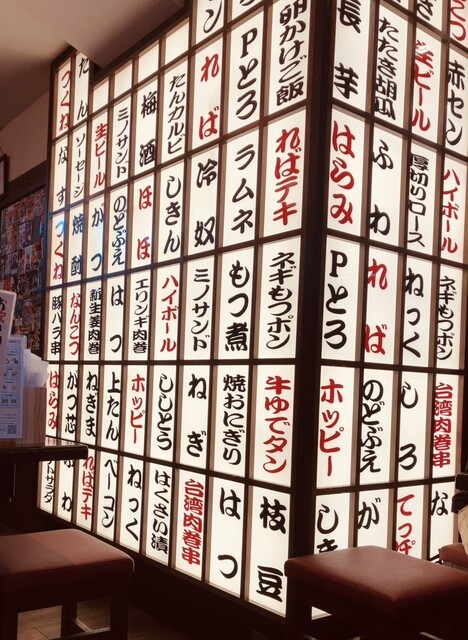 赤セン
生ビール
たたき胡瓜
長芋
ハイボール
厚切りロース
ふわ
はらみ
ネギもつポン
ねっく
れば
Pとろ
台湾肉巻串
しろ
のどぶえ
ホッピー
な
てっぽ
が
しき
卵かけご飯
Pとろ
れば
たんカルビ
梅酒
ミノサンド
生ビール
たん
つくね
ればテキ
ラムネ
冷奴
しきん
ほほ
のどぶえ
がつ
ソーセージ
なす
ネギもつポン
もつ煮
ミノサンド
ハイボール
エリンギ肉巻
はつ
新生姜肉巻
焼酎
つくね
牛ゆでタン
焼おにぎり
ねぎ
ししとう
ホッピー
上たん
ねぎま
なんこつ
豚バラ串
枝豆
はつ
台湾肉巻串
はくさい漬
ねっく
ベーコン
ればテキ
がつ芯
はらみ
ふわ
トサラダ